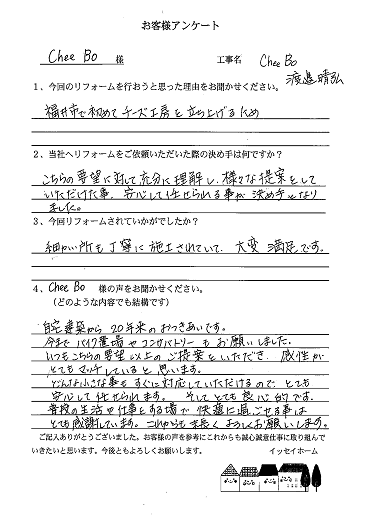 お客様アンケート
Chee Bo 様 工事名 Chee Bo
渡邉晴弘
1、今回のリフォームを行おうと思った理由をお聞かせください。
福井市で初めてチーズ工房を立ち上げるため
2、当社へリフォームをご依頼いただいた際の決め手は何ですか?
こちらの要望に対して充分に理解し、様々な提案をして
いただけた事、安心して任せられる事が決め手となり
ました。
3、今回リフォームされていかがでしたか?
細かい所も丁寧に施工されていて、大変満足です。
4、Chee Bo 様の声をお聞かせください。
(どのような内容でも結構です)
自宅建築から20年来のおつきあいです。
今までバイク置場やコンサバトリーもお願いしました。
いつもこちらの要望以上のご提案をいただき、感性が
とてもマッチしていると思います。
どんな小さな事もすぐに対応していただけるので、とても
安心して任せられます。そしてとても良心的です。
普段の生活や仕事をする場で快適に過ごせる事は
とても感謝しています。これからも末長くよろしくお願いします。
ご記入ありがとうございました。お客様の声を参考にこれからも誠心誠意仕事に取り組んで
いきたいと思います。今後ともよろしくお願いします。 イッセイホーム